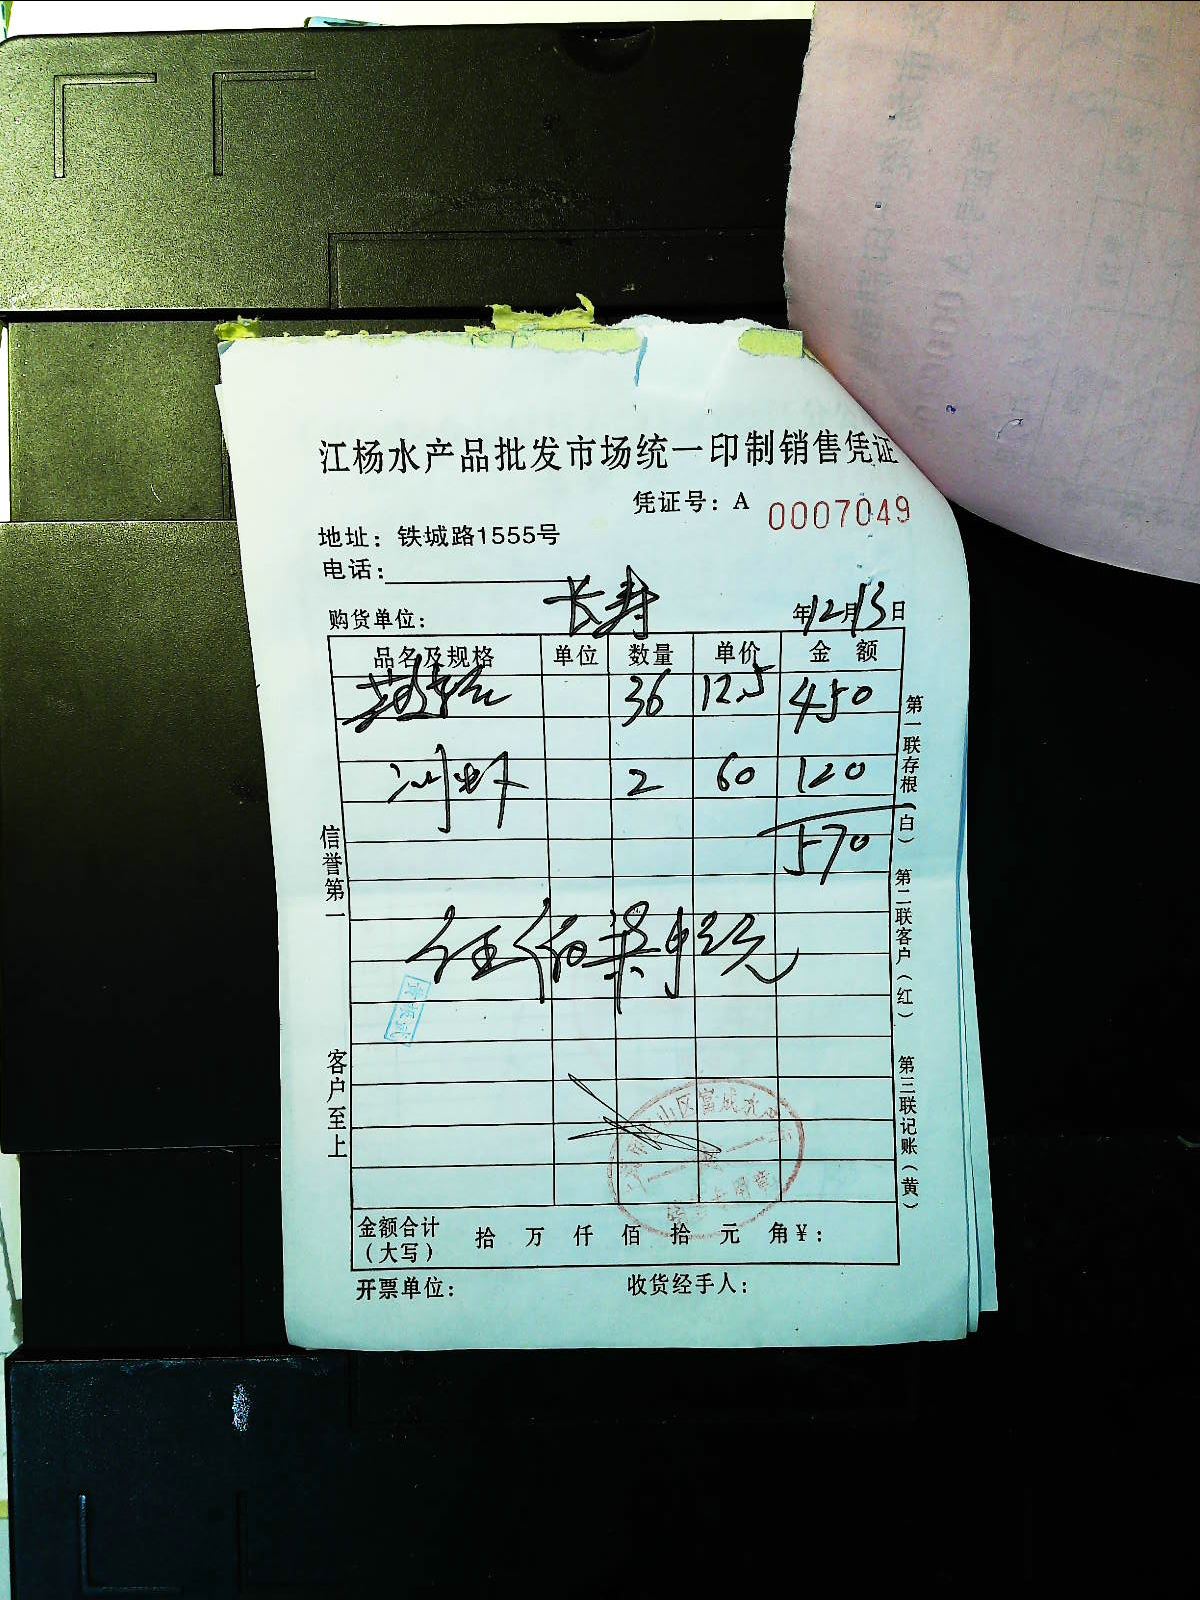 江杨水产品批发市场统一印制销售凭证
凭证号：A 0007049
地址：铁城路1555号
电话：
购货单位：长寿 年12月13日
品名及规格 单位 数量 单价 金额
36 12.5 450
河虾 2 60 120
570
伍佰柒拾元
信誉第一
客户至上
第一联存根（白）
第二联客户（红）
第三联记账（黄）
金额合计（大写） 拾 万 仟 佰 拾 元 角￥：
开票单位： 收货经手人：